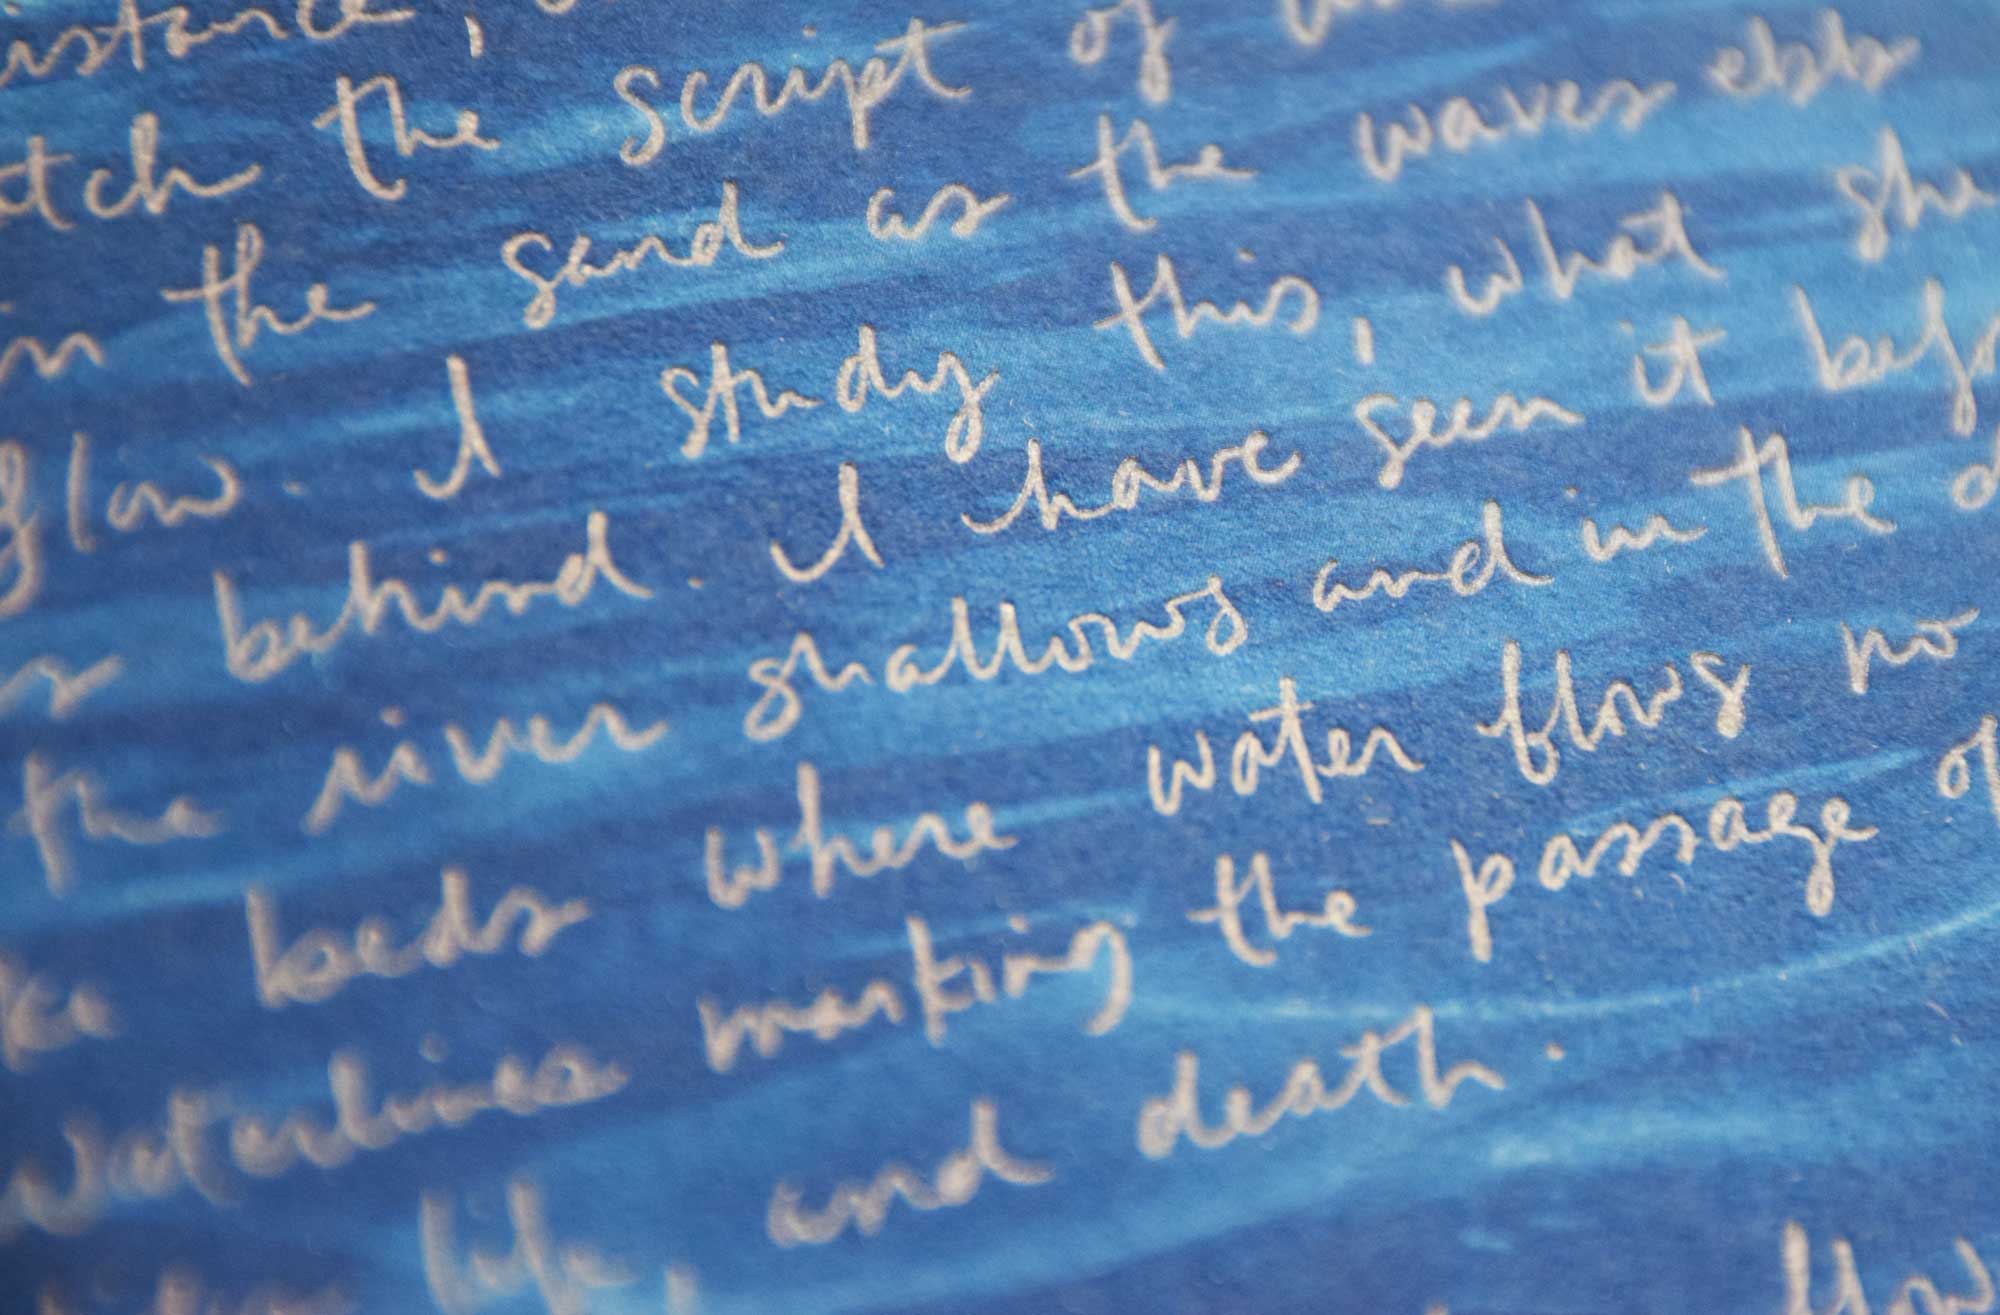 the script of
in the sand as the waves ebb
flow. I study this, what she
behind. I have seen it
the river shallows and in the
beds where water flows no
waterlines marking the passage of
life, and death.